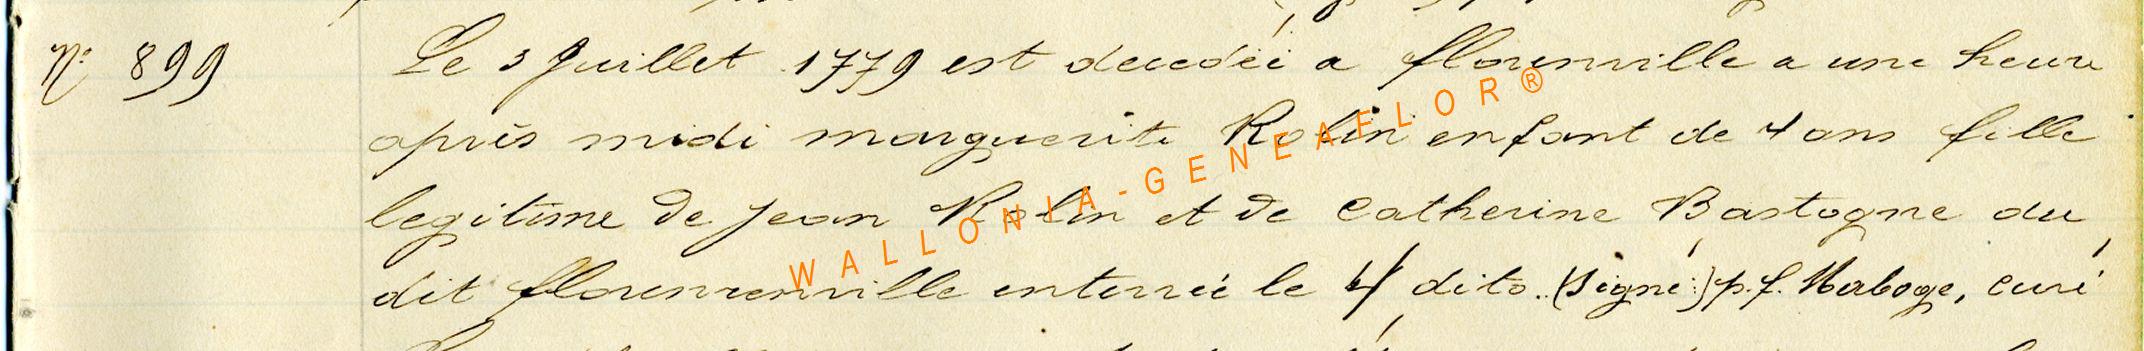 N° 899
Le 3 Juillet 1779 est decedéé a florenville a une heure
après midi marguerite Rolin enfant de 4 ans fille
legitime de Jean Rolin et de Catherine Bastogne du
dit florenrenville enterréé le 4 dito. (Signé:) p.f. Maboge, curé
WALLONIA-GENEAFLOR®